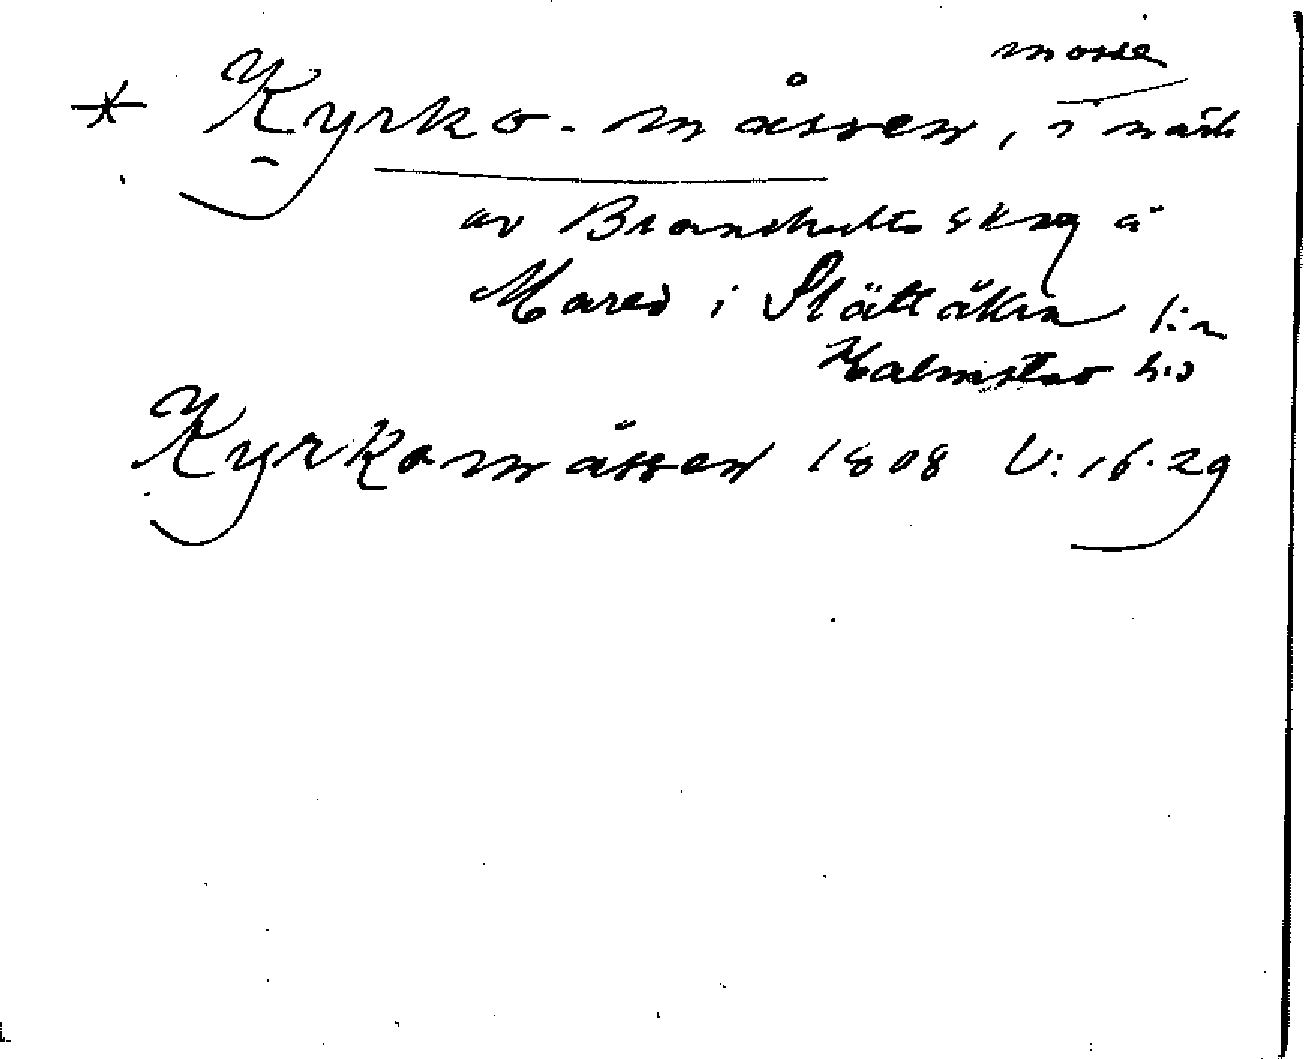 mosse
* Kyrko-måssen, i närh
av Branshults skog å
Mared i Slättåkra l:n
Halmstad h:d
Kyrkomåssen 1808 U: 16.29